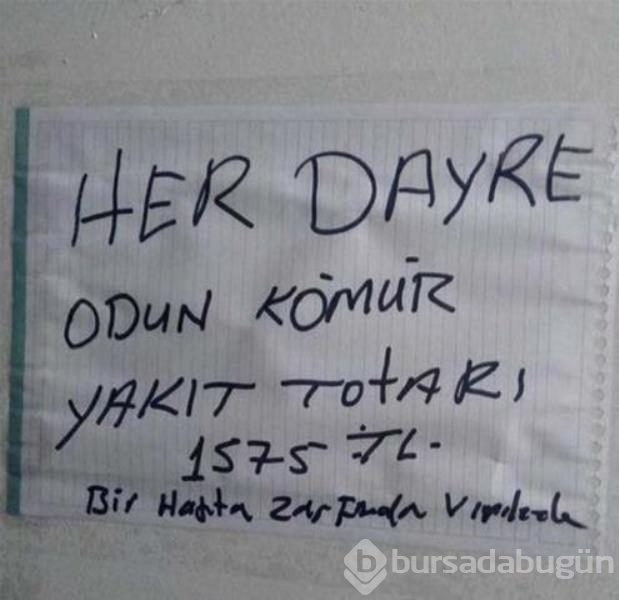 HER DAYRE
ODUN KÖMÜR
YAKIT TOtARI
1575 TL.
Bir Hafta Zarfında
bursadabugün